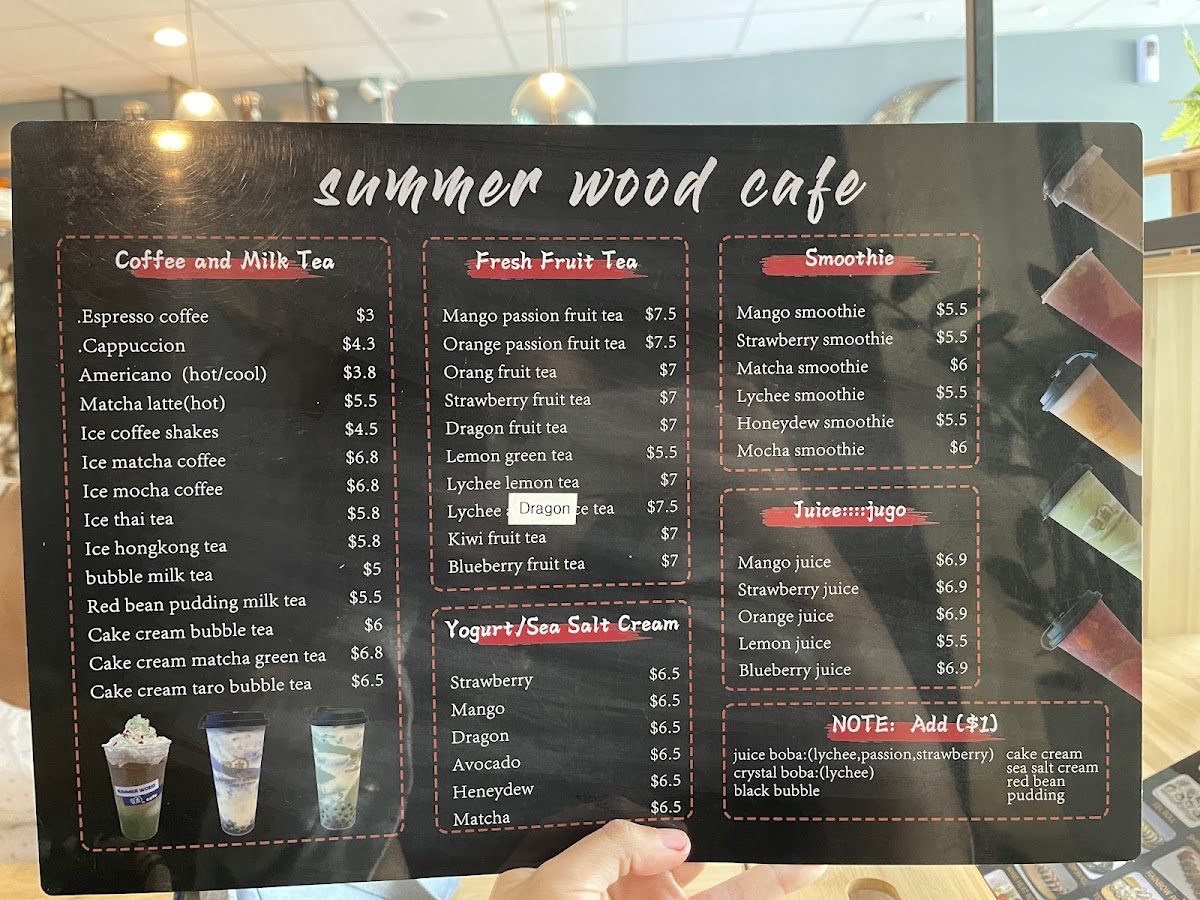 summer wood cafe
Coffee and Milk Tea
.Espresso coffee $3
.Cappuccion $4.3
Americano (hot/cool) $3.8
Matcha latte(hot) $5.5
Ice coffee shakes $4.5
Ice matcha coffee $6.8
Ice mocha coffee $6.8
Ice thai tea $5.8
Ice hongkong tea $5.8
bubble milk tea $5
Red bean pudding milk tea $5.5
Cake cream bubble tea $6
Cake cream matcha green tea $6.8
Cake cream taro bubble tea $6.5
Fresh Fruit Tea
Mango passion fruit tea $7.5
Orange passion fruit tea $7.5
Orang fruit tea $7
Strawberry fruit tea $7
Dragon fruit tea $7
Lemon green tea $5.5
Lychee lemon tea $7
Lychee Dragon ce tea $7.5
Kiwi fruit tea $7
Blueberry fruit tea $7
Yogurt/Sea Salt Cream
Strawberry $6.5
Mango $6.5
Dragon $6.5
Avocado $6.5
Heneydew $6.5
Matcha $6.5
Smoothie
Mango smoothie $5.5
Strawberry smoothie $5.5
Matcha smoothie $6
Lychee smoothie $5.5
Honeydew smoothie $5.5
Mocha smoothie $6
Juice::::jugo
Mango juice $6.9
Strawberry juice $6.9
Orange juice $6.9
Lemon juice $5.5
Blueberry juice $6.9
NOTE: Add ($1)
juice boba:(lychee,passion,strawberry)
crystal boba:(lychee)
black bubble
cake cream
sea salt cream
red bean
pudding